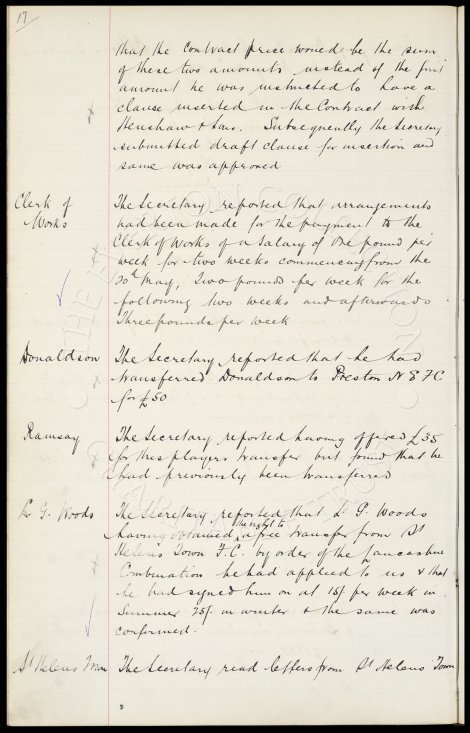 17
that the contract price would be the sum
of these two amounts instead of the first
amount he was instructed to have a
clause inserted in the Contract with
Henshaw & Sons. Subsequently the Secretary
submitted draft clause for insertion and
same was approved
Clerk of
Works
The Secretary reported that arrangements
had been made for the payment to the
Clerk of Works of a Salary of One pound per
week for two weeks commencing from the
20th May, Two pounds per week for the
following two weeks and afterwards
Three pounds per week
Donaldson
The Secretary reported that he had
transferred Donaldson to Preston N E F C
for £50
Ramsay
The Secretary reported having offered £35
for this players transfer but found that he
had previously been transferred
G. Woods
The Secretary reported that G. Woods
having obtained the right to a free transfer from St
Helens Town F.C. by order of the Lancashire
Combination he had applied to us & that
he had signed him on at 15/- per week in
Summer 25/- in winter & the same was
confirmed.
St Helens Town
The Secretary read letters from St Helens Town